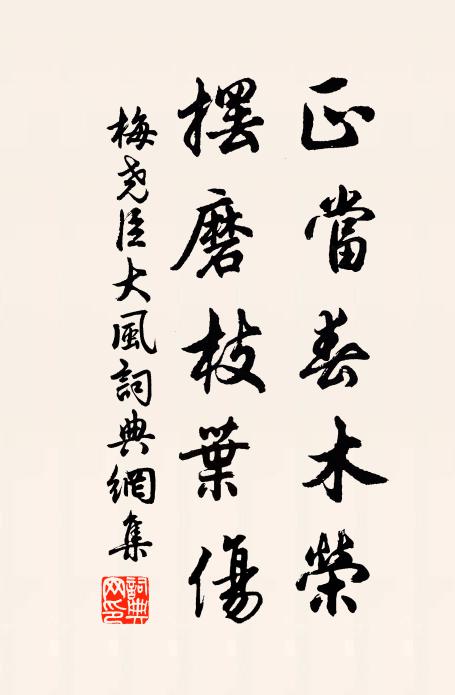 正當春木榮
擺磨枝葉傷
梅堯臣大風詞典網集
詞典网印